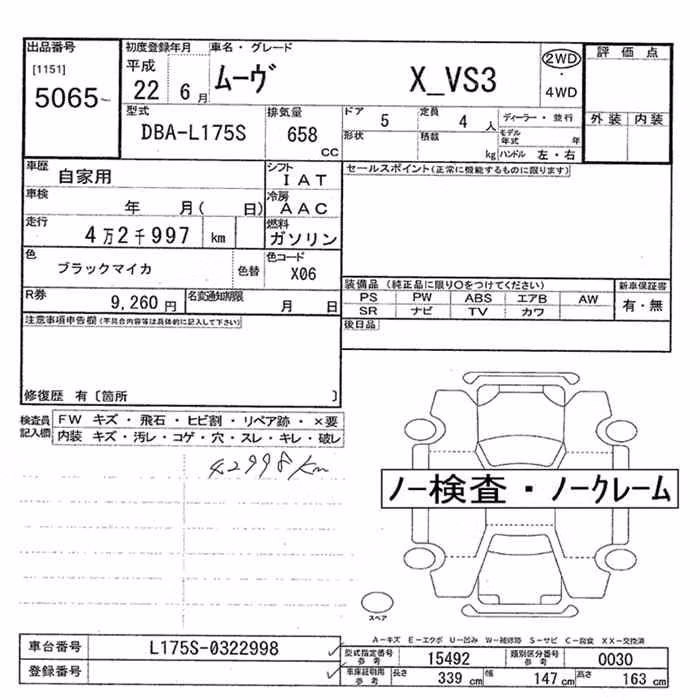 出品番号
[1151]
5065
初度登録年月
平成
22 6月
車名・グレード
ムーヴ X_VS3
2WD
・
4WD
評価点
外装 内装
型式
DBA-L175S
排気量
658
CC
ドア
5
定員
4 人
形状
積載
kg
ディーラー・並行
モデル年式 年
ハンドル 左・右
車歴
自家用
シフト
IAT
車検
年 月( 日)
冷房
AAC
走行
4万2千997 km
燃料
ガソリン
色
ブラックマイカ
色替
色コード
X06
R券
9,260 円
名変通知期限
月 日
セールスポイント(正常に機能するものに限ります)
装備品 (純正品に限り○をつけてください)
PS PW ABS エアB AW
SR ナビ TV カワ
新車保証書
有・無
後日品
注意事項申告欄(不具合内容等は具体的に記入して下さい)
修復歴 有〔箇所 〕
検査員記入欄
FW キズ・飛石・ヒビ割・リペア跡・×要
内装 キズ・汚レ・コゲ・穴・スレ・キレ・破レ
42998km
ノー検査・ノークレーム
スペア
A-キズ E-エクボ U-凹み W-補修跡 S-サビ C-腐食 XX-交換済
車台番号
L175S-0322998
登録番号
型式指定番号
参考
15492
類別区分番号
参考
0030
車庫証明用
参考
長さ 339 cm
幅 147 cm
高さ 163 cm